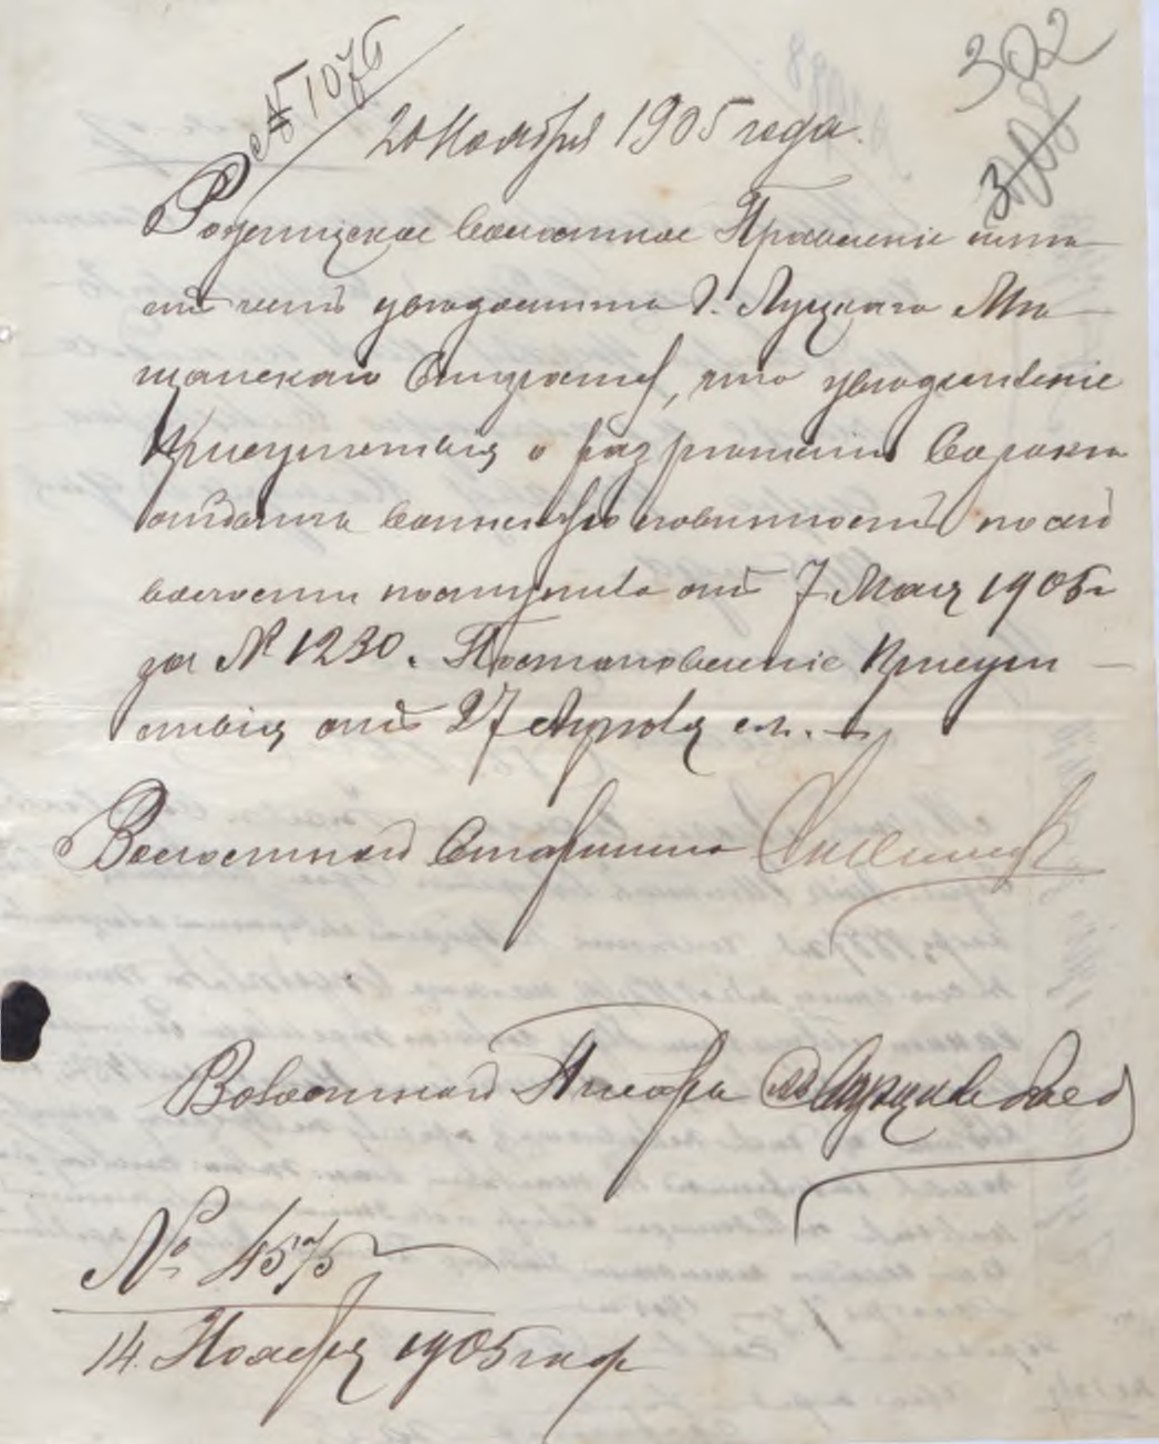 302
308
№ 1076
20 Ноября 1905 года.
Рожищское Волостное Правленіе симъ
увѣдомляетъ Г. Луцкаго Мѣ
щанскаго Старосту, что увѣдомленіе
Присутствія о разрѣшеніи
отбыть воинскую повинность по сей
волости поступило отъ 7 Мая 1905 г
за № 1230. Постановленіе Присут
ствія отъ 27 Апрѣля с.г.
Волостной Старшина
Волостной Писарь
№ 4575
14 Ноября 1905 года